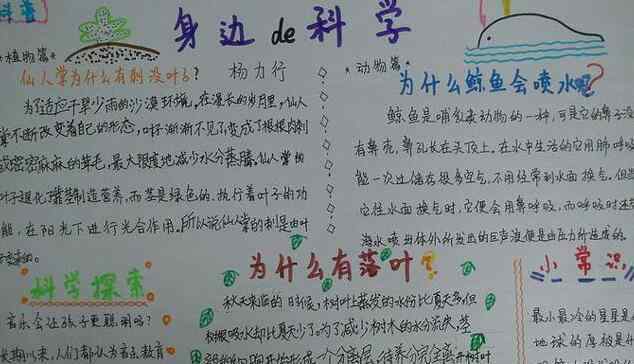 科普
身边de科学
*植物篇*
仙人掌为什么有刺没叶子？
杨力行
为了适应干旱少雨的沙漠环境，在漫长的岁月里，仙人
掌不断改变着自己的形态，叶子渐渐不见了变成了根根肉刺
或密密麻麻的茸毛，最大限度地减少水分蒸腾。仙人掌的
叶子退化 制造营养，而茎是绿色的，执行着叶子的功
能，在阳光下进行光合作用。所以说仙人掌的刺是由叶
变来的。
*动物篇*
为什么鲸鱼会喷水呢？
鲸鱼是哺乳类动物的一种，可是它的鼻子没
有鼻壳，鼻孔长在头顶上。在水中生活的它用肺呼吸
能一次过储存很多空气，不用经常到水面换气。但当
它往水面换气时，它便会用鼻呼吸，而呼吸时还
海水喷出体外所发出的巨声浪便是由压力所造成的。
科学探索
音乐会让孩子更聪明吗？
长期以来，人们都认为音乐教育
为什么有落叶？
秋天来临的时候，树叶上蒸发的水份比夏天多，但
树根吸水却比夏天少了。为了减少树木的水分流失，茎
小常识
最小最冷的星星是
地球的厚极是